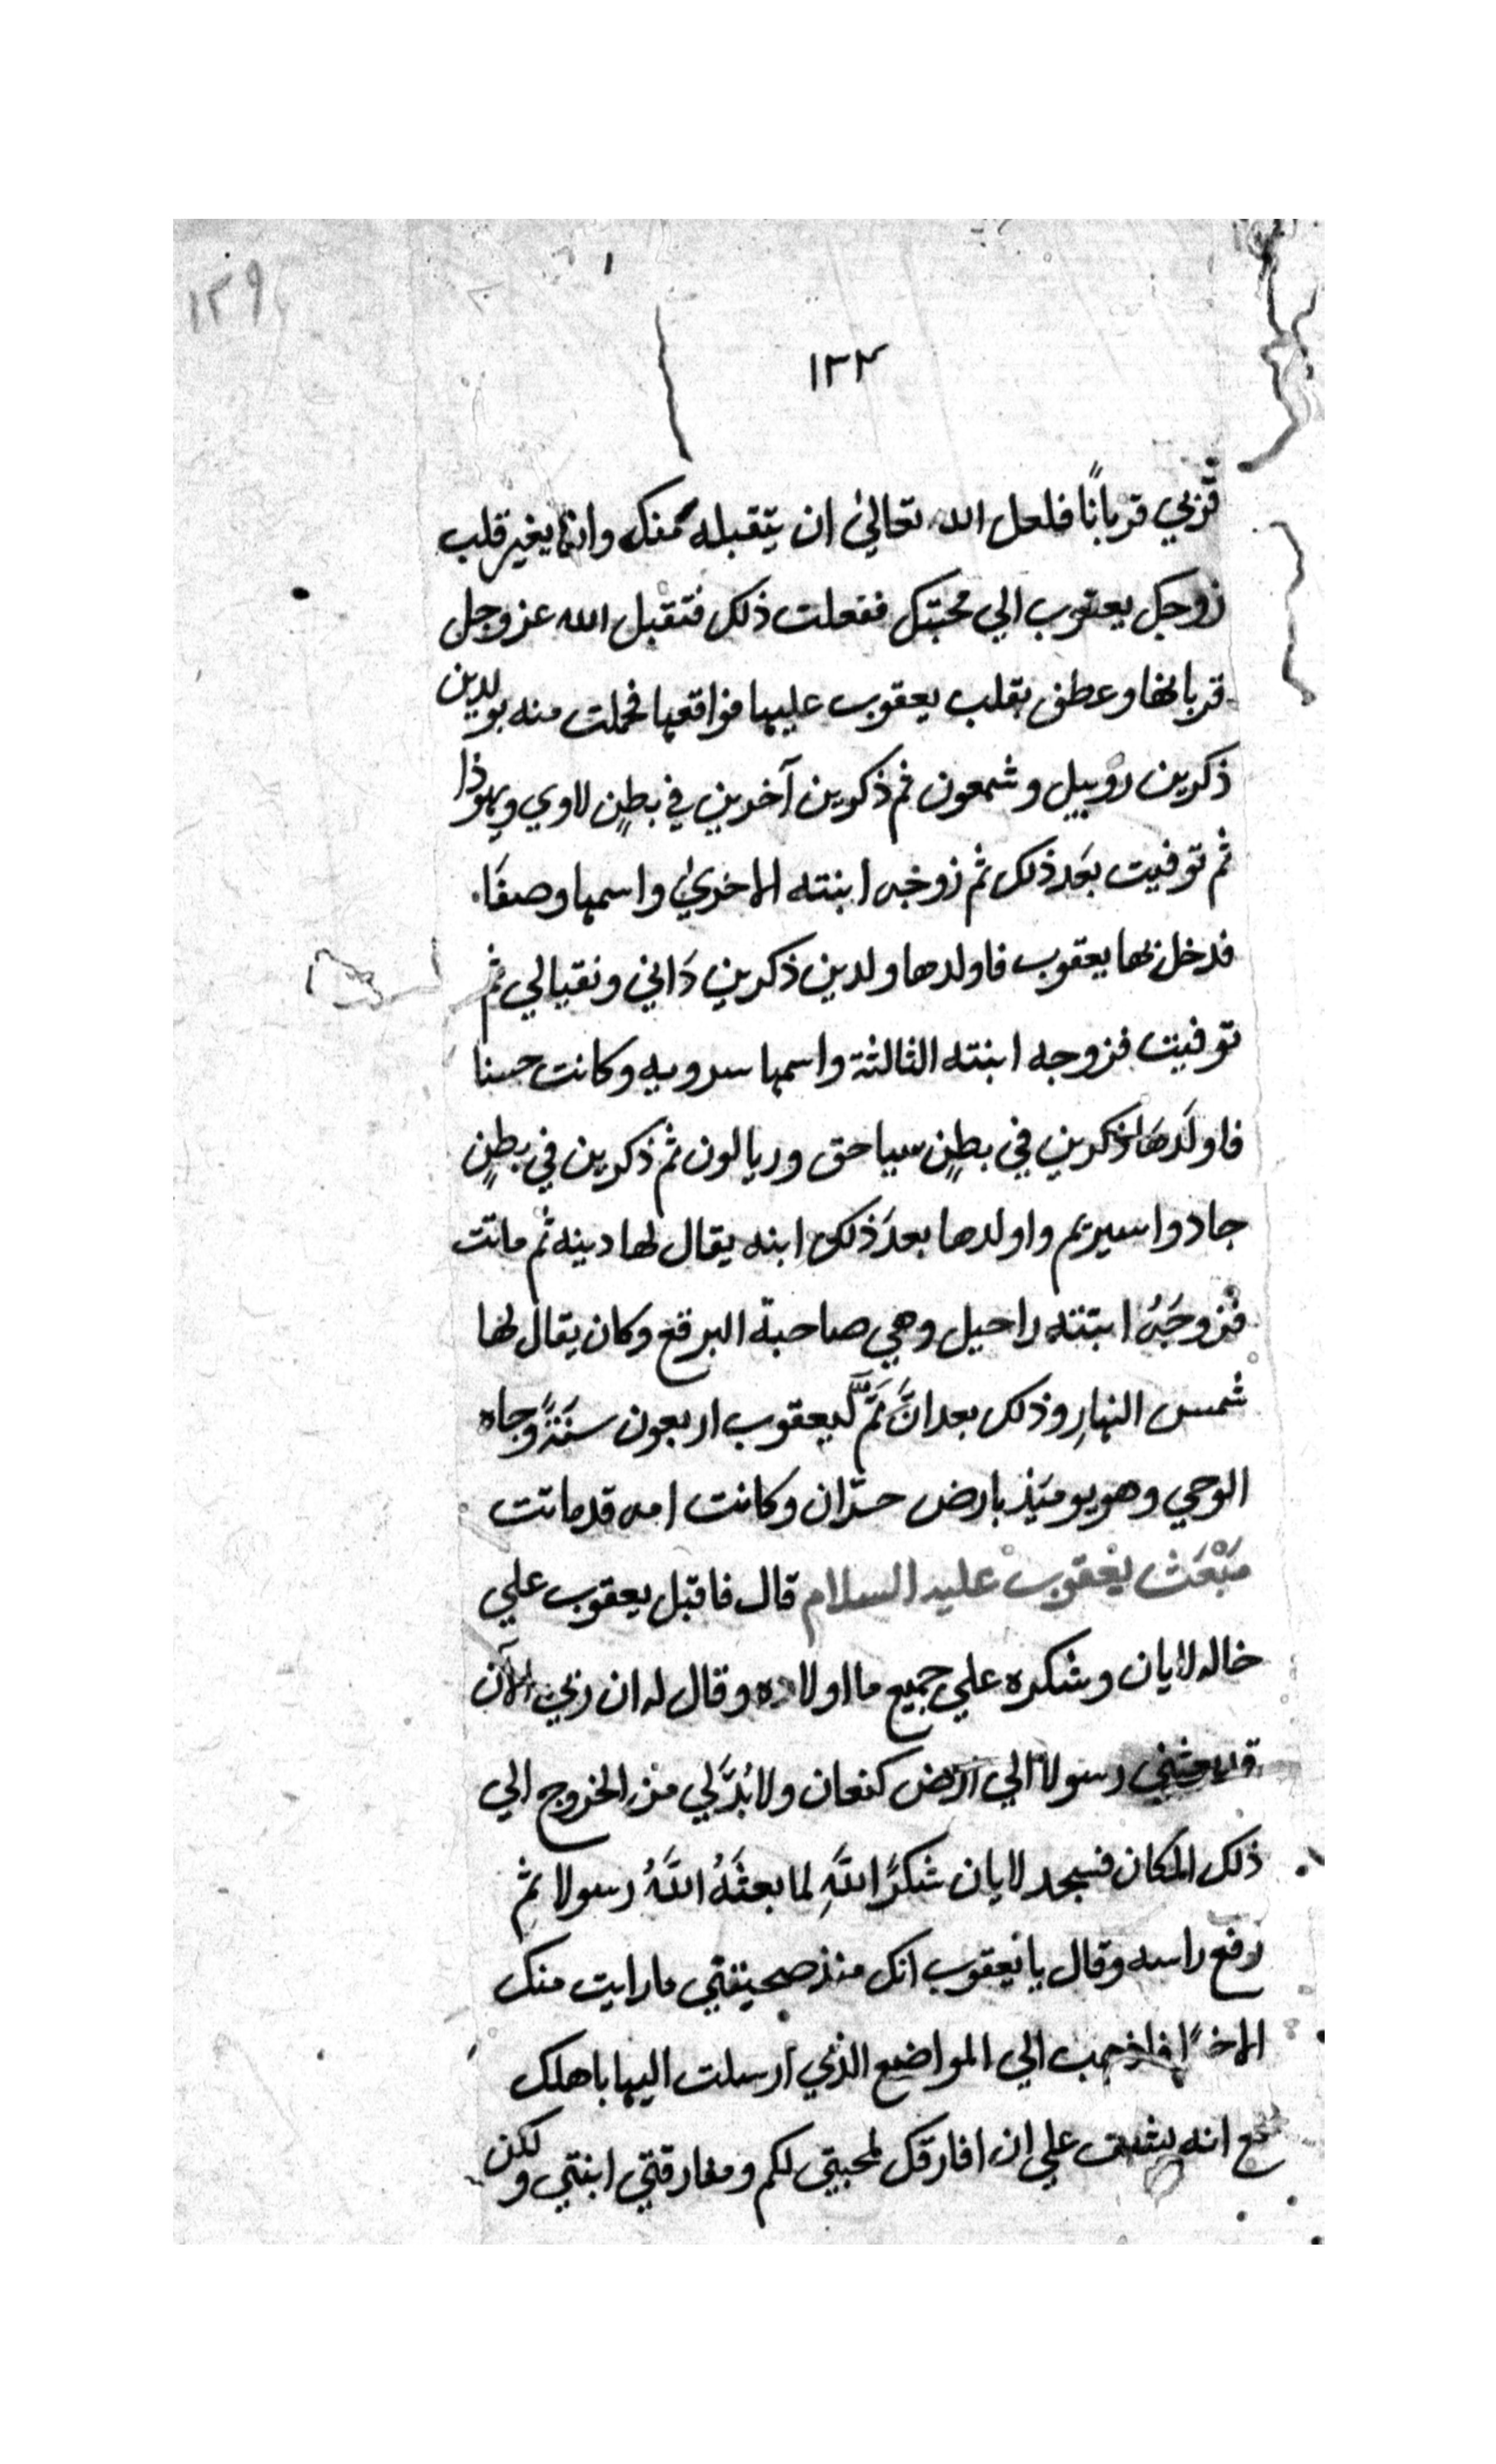 ١٢٩
١٣٣
قربي قربانًا فلعل الله تعالىٰ ان يتقبله منك وانما يغير قلب
زوجك يعقوب الي محبتك ففعلت ذلك فتقبل الله عز وجل
قربانها وعطف بقلب يعقوب عليها فواقعها فحملت منه بولدين
ذكرين روبيل وشمعون ثم ذكرين آخرين في بطنٍ لاوي ويهوذا
ثم توفيت بعَد ذلك ثم زوجه ابنته الاخرىٰ واسمها وصفَا
فدخل بها يعقوب فاولدها ولدين ذكرين دَاني ونقيالي ثم
توفيت فزوجه ابنته الثالثة واسمها سرويه وكانت حسنا
فاولَدهَا ذكرين في بطنٍ سياحق وريالون ثم ذكرين في بطنٍ
جاد واسيريم واولدها بعدَ ذلك ابنه يقال لها دينه ثم ماتت
فزوجَهُ ابنته راحيل وهي صاحبة البرقع وكان يقال لها
شمس النهارِ وذلك بعد انَّ تمَّ ليعقوب اربعون سنَةً وجاه
الوحي وهو يومَيذ بارض حرّان وكانت امه قد ماتت
مَبْعَث يعْقوب عليه السلام قال فاقبل يعقوب علي
خاله لايان وشكره علي جميع ما اولاده وقال له ان ربي الآن
قد بعثني رسولا الي ارض كنعان ولا بُدَّ لي من الخروج الي
ذلك المكان فسجد لايان شكرًا للهِ لما بعثَهُ اللَّهُ رسولا ثم
رفع راسه وقال يا يعقوب انك منذ صحيفتي ما رايت منك
الاخ‍ًا فاذهب الي المواضع الذي ارسلت اليها باهلك
مع انه يشق علي ان افارقك لمحبتي لكم ومفارقتي ابنتي ولكن